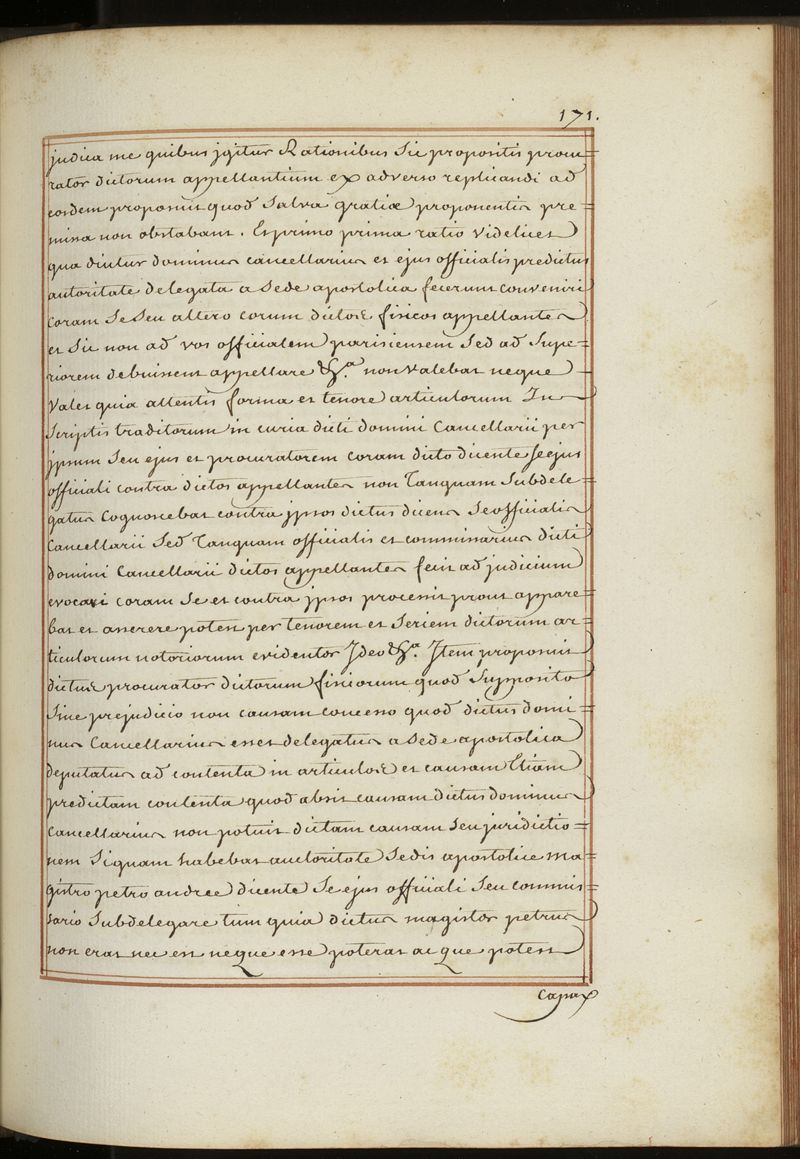 171.
judica me quibus jgitur Rationibus Sic propositis procu=
rator dictorum appellantium ex adverso replicandi ad
eosdem proposuit quod Salva gratiæ proponentis pre=
missa non obstabant. Et primo prima ratio Videlicet
qua dicitur dominus cancellarius et ejus officialis predictus
autoritate delegata a Sede apostolica fecerunt conveniri
coram Se Seu altero eorum dictos fisicos appellantes
et Sic non ad vos officialem parisiensem Sed ad Supe=
riorem debuissent appellare &.ª non Valebat neque
Valet quia attentis forma et tenore articulorum In
Scriptis traditorum in curia dicti domini Cancellarii per
jpsum Seu ejus et procuratorem coram dicto dicente Se ejus
officiali contra dictos appellantes non Tanquam Subdele=
gatus Cognoscebat contra jpsos dictus dicens Se officialis
Cancellarii Sed Tanquam officialis et commissarius dicti
domini Cancellarii dictos appellantes fecit ad judicium
evocari coram Se et contra jpsos processit prout appare=
bat et asserere potest per tenorem et Seriem dictorum ar=
ticulorum notoriorum evidenter Jdeo &.ª Jtem proposuit
dictus procurator dictorum fisicorum quod Supposito
Sine prejudicio non causam concesso quod dictus domi=
nus Cancellarius esset delegatus a Sede apostolica
deputatus ad contenta in articulos et causam Etiam
predictam contenta quod absit causam dictus dominus
Cancellarius non potuit dictam causam Seu juridictio=
nem Si quam habebat auctoritate Sedis apostolice ma=
gistro petro andree dicente Se ejus officiali Seu commis=
sario Subdelegare tum quia dictus magister petrus
non erat nec est neque esse poterat ac que potest
Capax